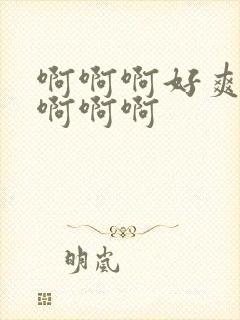 啊啊啊好爽
啊啊啊
明岚